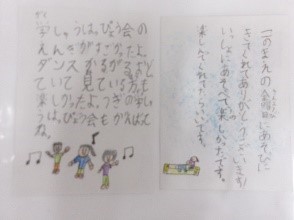 がく
学しゅうはっぴょう会の
えんぎがすごかったよ。
ダンスがある
ていて見ている方も
楽しかったよ。つぎの学しゅ
うはっぴょう会もがんばって
ね。
この
金曜日にあそびに
きてくれてありがとうございます!
いっしょにあそべて楽しかったです。
楽しんでくれてたらいいです。